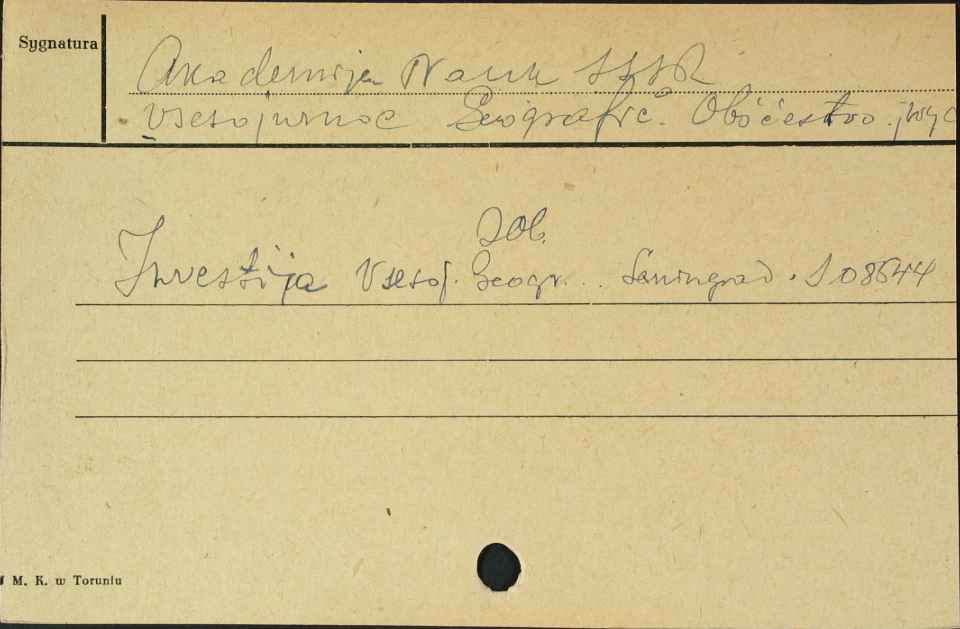 Sygnatura
Akademija Nauk SSSR
Vsesojuznoe Geografič. Občestvo.
zob.
Izvestija Vsesoj. Geogr. Leningrad. S 08544
M. K. w Toruniu